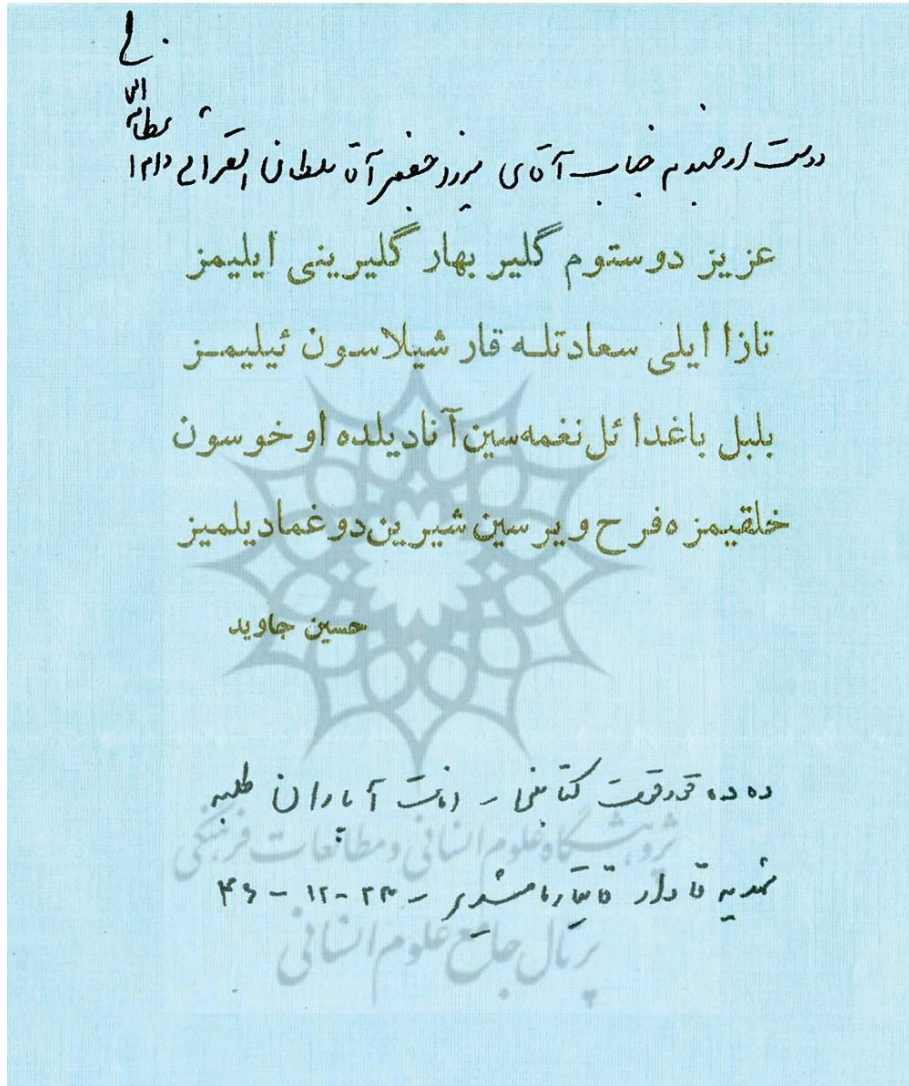 دوست ارجمندم جناب آقای میرزا جعفر آقا سلطان القرائی دام
عزیز دوستوم گلیر بهار گلیرینی ایلیمز
تازا ایلی سعادتله قارشیلاسون ئیلیمز
بلبل باغدا ئل نغمه‌سین آنادیلده اوخوسون
خلقیمزه فرح ویرسین شیرین دوغما دیلمیز
حسین جاوید
ده ده قورقوت کتابنی - امانت آپاران طلبه
۴۶ - ۱۲ - ۲۳ -
پژوهشگاه علوم انسانی و مطالعات فرهنگی
پرتال جامع علوم انسانی